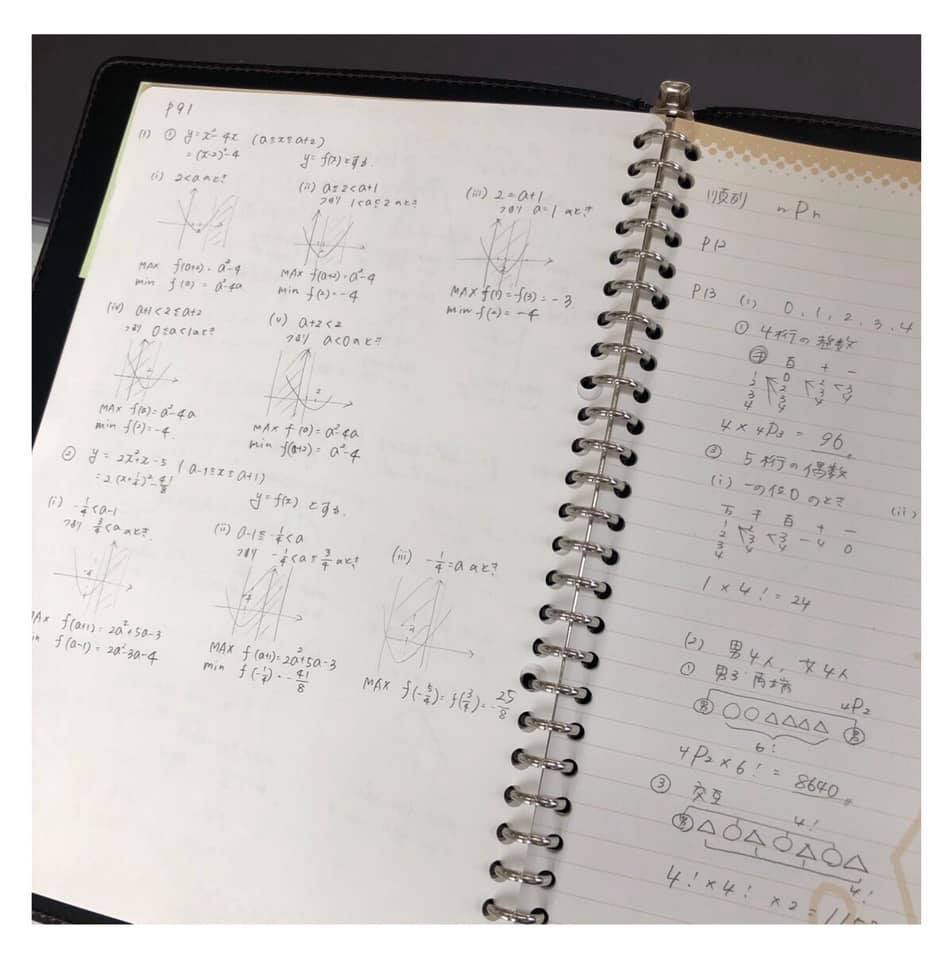 P91
(1) ① y=x²-4x (a≦x≦a+2)
=(x-2)²-4 y=f(x)とする.
(i) 2<aのとき
MAX f(a+2)=a²-4
min f(a)=a²-4a
(ii) a≦2<a+1
つまり 1<a≦2のとき
MAX f(a+2)=a²-4
min f(2)=-4
(iii) 2=a+1
つまり a=1のとき
MAX f(1)=f(3)=-3
min f(2)=-4
(iv) a+1<2≦a+2
つまり 0≦a<1のとき
MAX f(a)=a²-4a
min f(2)=-4.
(v) a+2<2
つまり a<0のとき
MAX f(a)=a²-4a
min f(a+2)=a²-4
② y=2x²+x-5 (a-1≦x≦a+1)
=2(x+1/4)²-41/8 y=f(x)とする.
(i) -1/4<a-1
つまり 3/4<aのとき.
MAX f(a+1)=2a²+5a-3
min f(a-1)=2a²-3a-4
(ii) a-1≦-1/4<a
つまり -1/4<a≦3/4のとき
MAX f(a+1)=2a²+5a-3
min f(-1/4)=-41/8
(iii) -1/4=aのとき
MAX f(-5/4)=f(3/4)=-25/8
順列 nPr
P12
P13 (1) 0,1,2,3,4
① 4桁の整数
千 百 十 一
1 0
2 2 2 3
3 3 3 4
4 4 4
4×4P3=96。
② 5桁の偶数
(i) 一の位0のとき (ii)
万 千 百 十 一
1 2
2 3 3 -4 0
3 4 4
4
1×4!=24
(2) 男4人, 女4人
① 男子両端
4P2
男 ○○△△△△ 男
6!
4P2×6!=8640。
③ 交互
4!
男△○△○△○△
4!
4!×4!×2=115